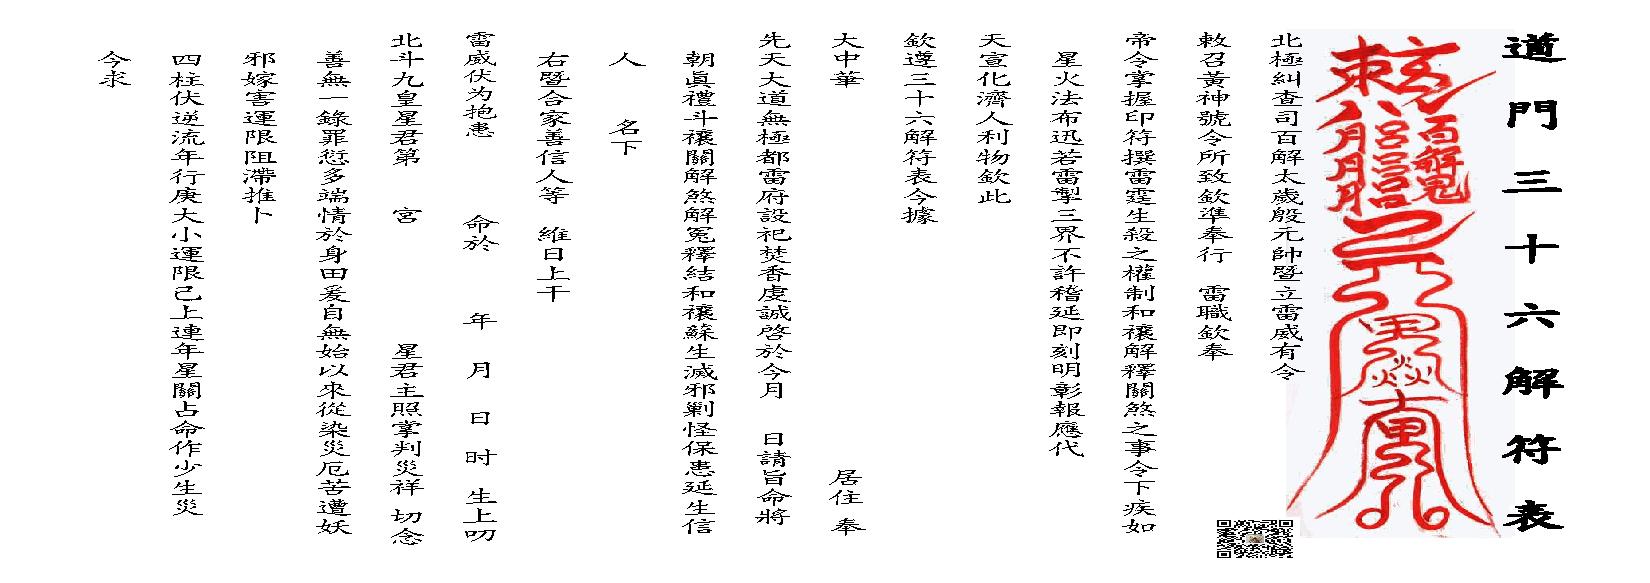 道門三十六解符表
百解鬼
北極糾查司百解太歲殷元帥暨立雷威有令
敕召黃神號令所致欽準奉行 雷職欽奉
帝令掌握印符撰雷霆生殺之權制和禳解釋關煞之事令下疾如
星火法布迅若雷掣三界不許稽延即刻明彰報應代
天宣化濟人利物欽此
欽遵三十六解符表今據
大中華 居住 奉
先天大道無極都雷府設祀焚香虔誠啓於今月 日請旨命將
朝眞禮斗禳關解煞解冤釋結和禳蘇生滅邪剿怪保患延生信
人 名下
右暨合家善信人等 維日上干
雷威伏为抱患 命於 年 月 日 时 生上叨
北斗九皇星君第 宮 星君主照掌判災祥 切念
善無一錄罪愆多端情於身田爰自無始以來從染災厄苦遭妖
邪嫁害運限阻滯推卜
四柱伏逆流年行庚大小運限己上連年星關占命作少生災
今求